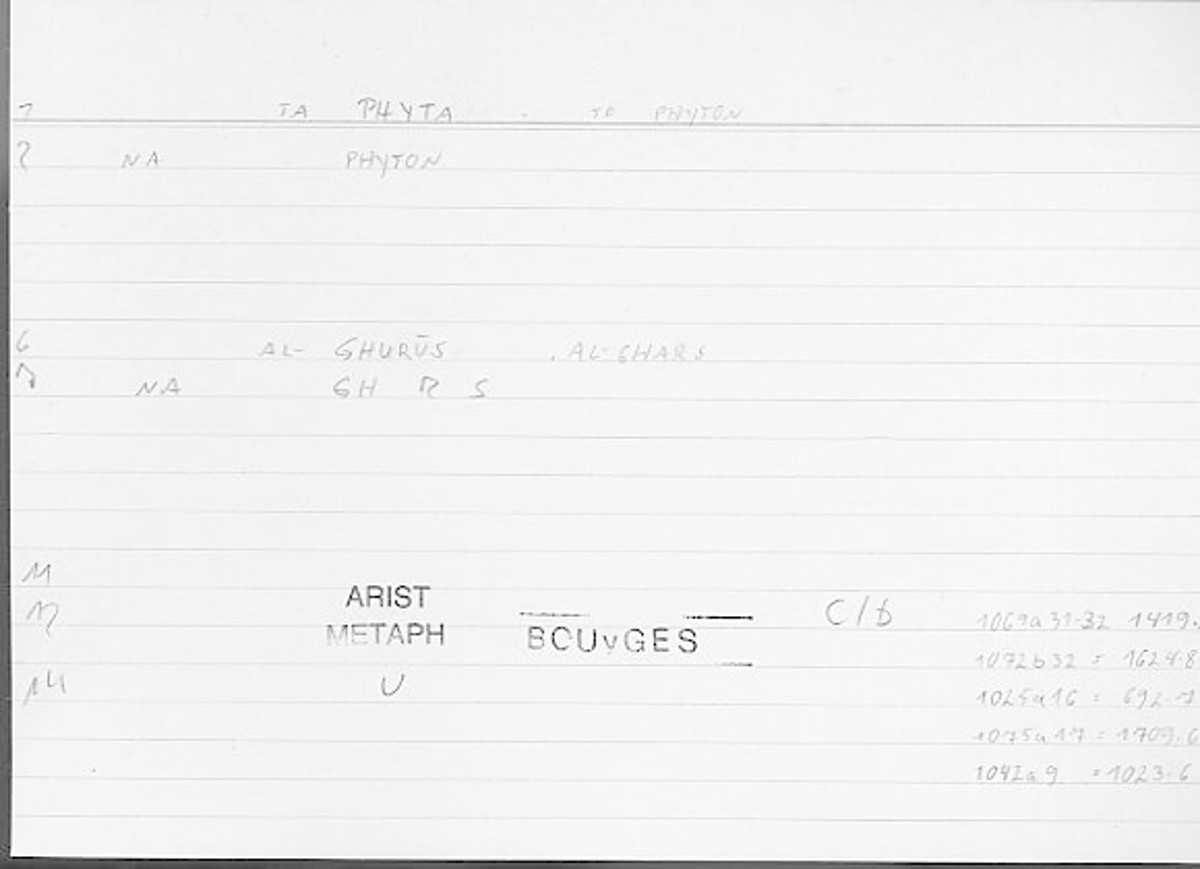 1 TA PHYTA . TO PHYTON
2 NA PHYTON
6 AL- GHURŪS , AL-GHARS
7 NA GH R S
11 ARIST
12 METAPH BOUYGES C/b 1069a31-32 1419.
1072b32 = 1624.8
14 U 1025a16 = 692.7
1075a17 = 1709.6
1042a9 = 1023.6